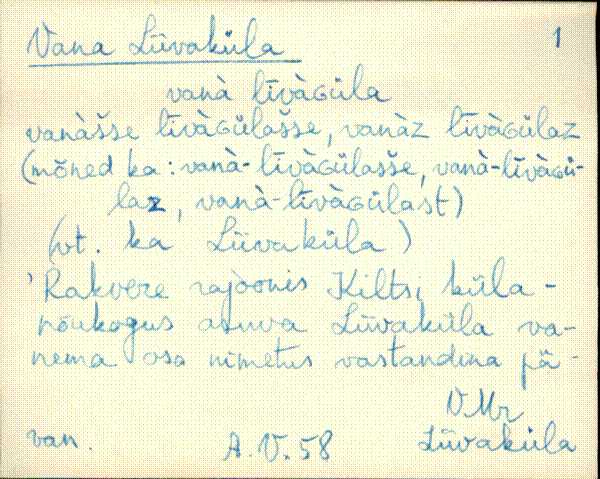 Vana Liivaküla 1
vanà līvàɢüla
vanàšse līvàɢülašse, vanàz līvàɢülaz
(mõned ka: vanà-līvàɢülasše, vanà-līvàɢü-
laz, vanà-līvàɢülast)
(vt. ka Liivaküla)
'Rakvere rajoonis Kiltsi küla-
nõukogus asuva Liivaküla va-
nema osa nimetus vastandina pä-
V.Mr
van. A.V.58 Liivaküla